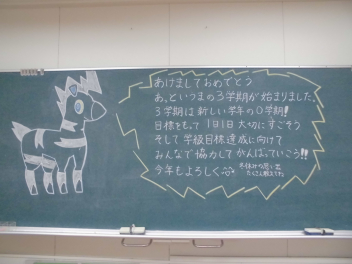 あけましておめでとう
あ。という間の3学期が始まりました。
3学期は新しい学年の0学期!!
目標をもって 1日1日 大切にすごそう
そして 学級目標達成に向けて
みんなで協力して がんばっていこう!!
今年もよろしく
冬休みの思い出
たくさん教えてね